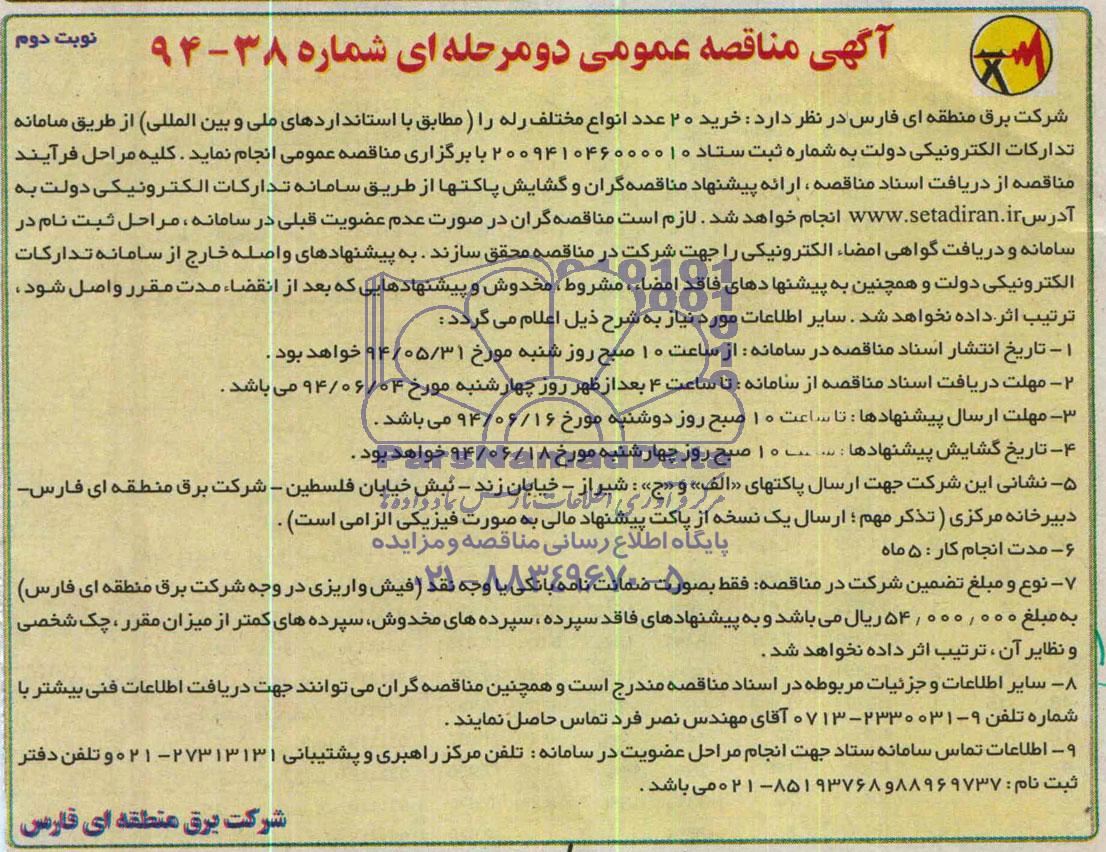 آگهی مناقصه عمومی دو مرحله ای شماره ۳۸-۹۴
نوبت دوم
شرکت برق منطقه ای فارس در نظر دارد : خرید ۲۰ عدد انواع مختلف رله را ( مطابق با استانداردهای ملی و بین المللی) از طریق سامانه
تدارکات الکترونیکی دولت به شماره ثبت ستاد ۲۰۰۹۴۱۰۴۶۰۰۰۰۱۰ با برگزاری مناقصه عمومی انجام نماید . کلیه مراحل فرآیند
مناقصه از دریافت اسناد مناقصه ، ارائه پیشنهاد مناقصه‌گران و گشایش پاکتها از طریق سامانه تدارکات الکترونیکی دولت به
آدرس www.setadiran.ir انجام خواهد شد . لازم است مناقصه گران در صورت عدم عضویت قبلی در سامانه ، مراحل ثبت نام در
سامانه و دریافت گواهی امضاء الکترونیکی را جهت شرکت در مناقصه محقق سازند . به پیشنهادهای واصله خارج از سامانه تدارکات
الکترونیکی دولت و همچنین به پیشنهادهای فاقد امضاء ، مشروط ، مخدوش و پیشنهادهایی که بعد از انقضاء مدت مقرر واصل شود ،
ترتیب اثر داده نخواهد شد . سایر اطلاعات مورد نیاز به شرح ذیل اعلام می گردد :
۱- تاریخ انتشار اسناد مناقصه در سامانه : از ساعت ۱۰ صبح روز شنبه مورخ ۹۴/۰۵/۳۱ خواهد بود .
۲- مهلت دریافت اسناد مناقصه از سامانه : تا ساعت ۴ بعدازظهر روز چهارشنبه مورخ ۹۴/۰۶/۰۴ می باشد .
۳- مهلت ارسال پیشنهادها : تا ساعت ۱۰ صبح روز دوشنبه مورخ ۹۴/۰۶/۱۶ می باشد .
۴- تاریخ گشایش پیشنهادها : ساعت ۱۰ صبح روز چهارشنبه مورخ ۹۴/۰۶/۱۸ خواهد بود .
ParsNamadData
۵- نشانی این شرکت جهت ارسال پاکتهای «الف» و «ج» : شیراز - خیابان زند - نبش خیابان فلسطین - شرکت برق منطقه ای فارس-
دبیرخانه مرکزی ( تذکر مهم ؛ ارسال یک نسخه از پاکت پیشنهاد مالی به صورت فیزیکی الزامی است) .
پایگاه اطلاع رسانی مناقصه و مزایده
۶- مدت انجام کار : ۵ ماه
۰۲۱-۸۸۳۴۹۶۷۰-۵
۷- نوع و مبلغ تضمین شرکت در مناقصه: فقط بصورت ضمانت نامه بانکی یا وجه نقد (فیش واریزی در وجه شرکت برق منطقه ای فارس)
به مبلغ ۵۴,۰۰۰,۰۰۰ ریال می باشد و به پیشنهادهای فاقد سپرده ، سپرده های مخدوش، سپرده های کمتر از میزان مقرر ، چک شخصی
و نظایر آن ، ترتیب اثر داده نخواهد شد .
۸- سایر اطلاعات و جزئیات مربوطه در اسناد مناقصه مندرج است و همچنین مناقصه گران می توانند جهت دریافت اطلاعات فنی بیشتر با
شماره تلفن ۹-۲۳۳۰۰۳۱-۰۷۱۳ آقای مهندس نصر فرد تماس حاصل نمایند .
۹- اطلاعات تماس سامانه ستاد جهت انجام مراحل عضویت در سامانه : تلفن مرکز راهبری و پشتیبانی ۲۷۳۱۳۱۳۱-۰۲۱ و تلفن دفتر
ثبت نام : ۸۸۹۶۹۷۳۷ و ۸۵۱۹۳۷۶۸-۰۲۱ می باشد .
شرکت برق منطقه ای فارس